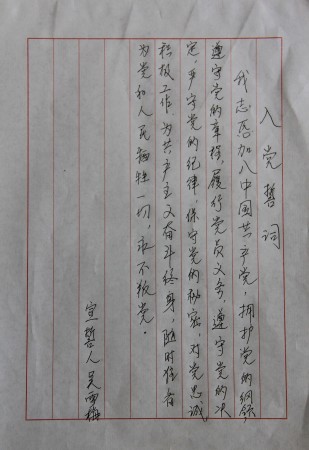 入党誓词
我志愿加入中国共产党，拥护党的纲领，
遵守党的章程，履行党员义务，遵守党的决
定，严守党的纪律，保守党的秘密，对党忠诚
积极工作，为共产主义奋斗终身，随时准备
为党和人民牺牲一切，永不叛党。
宣誓人 吴雪梅